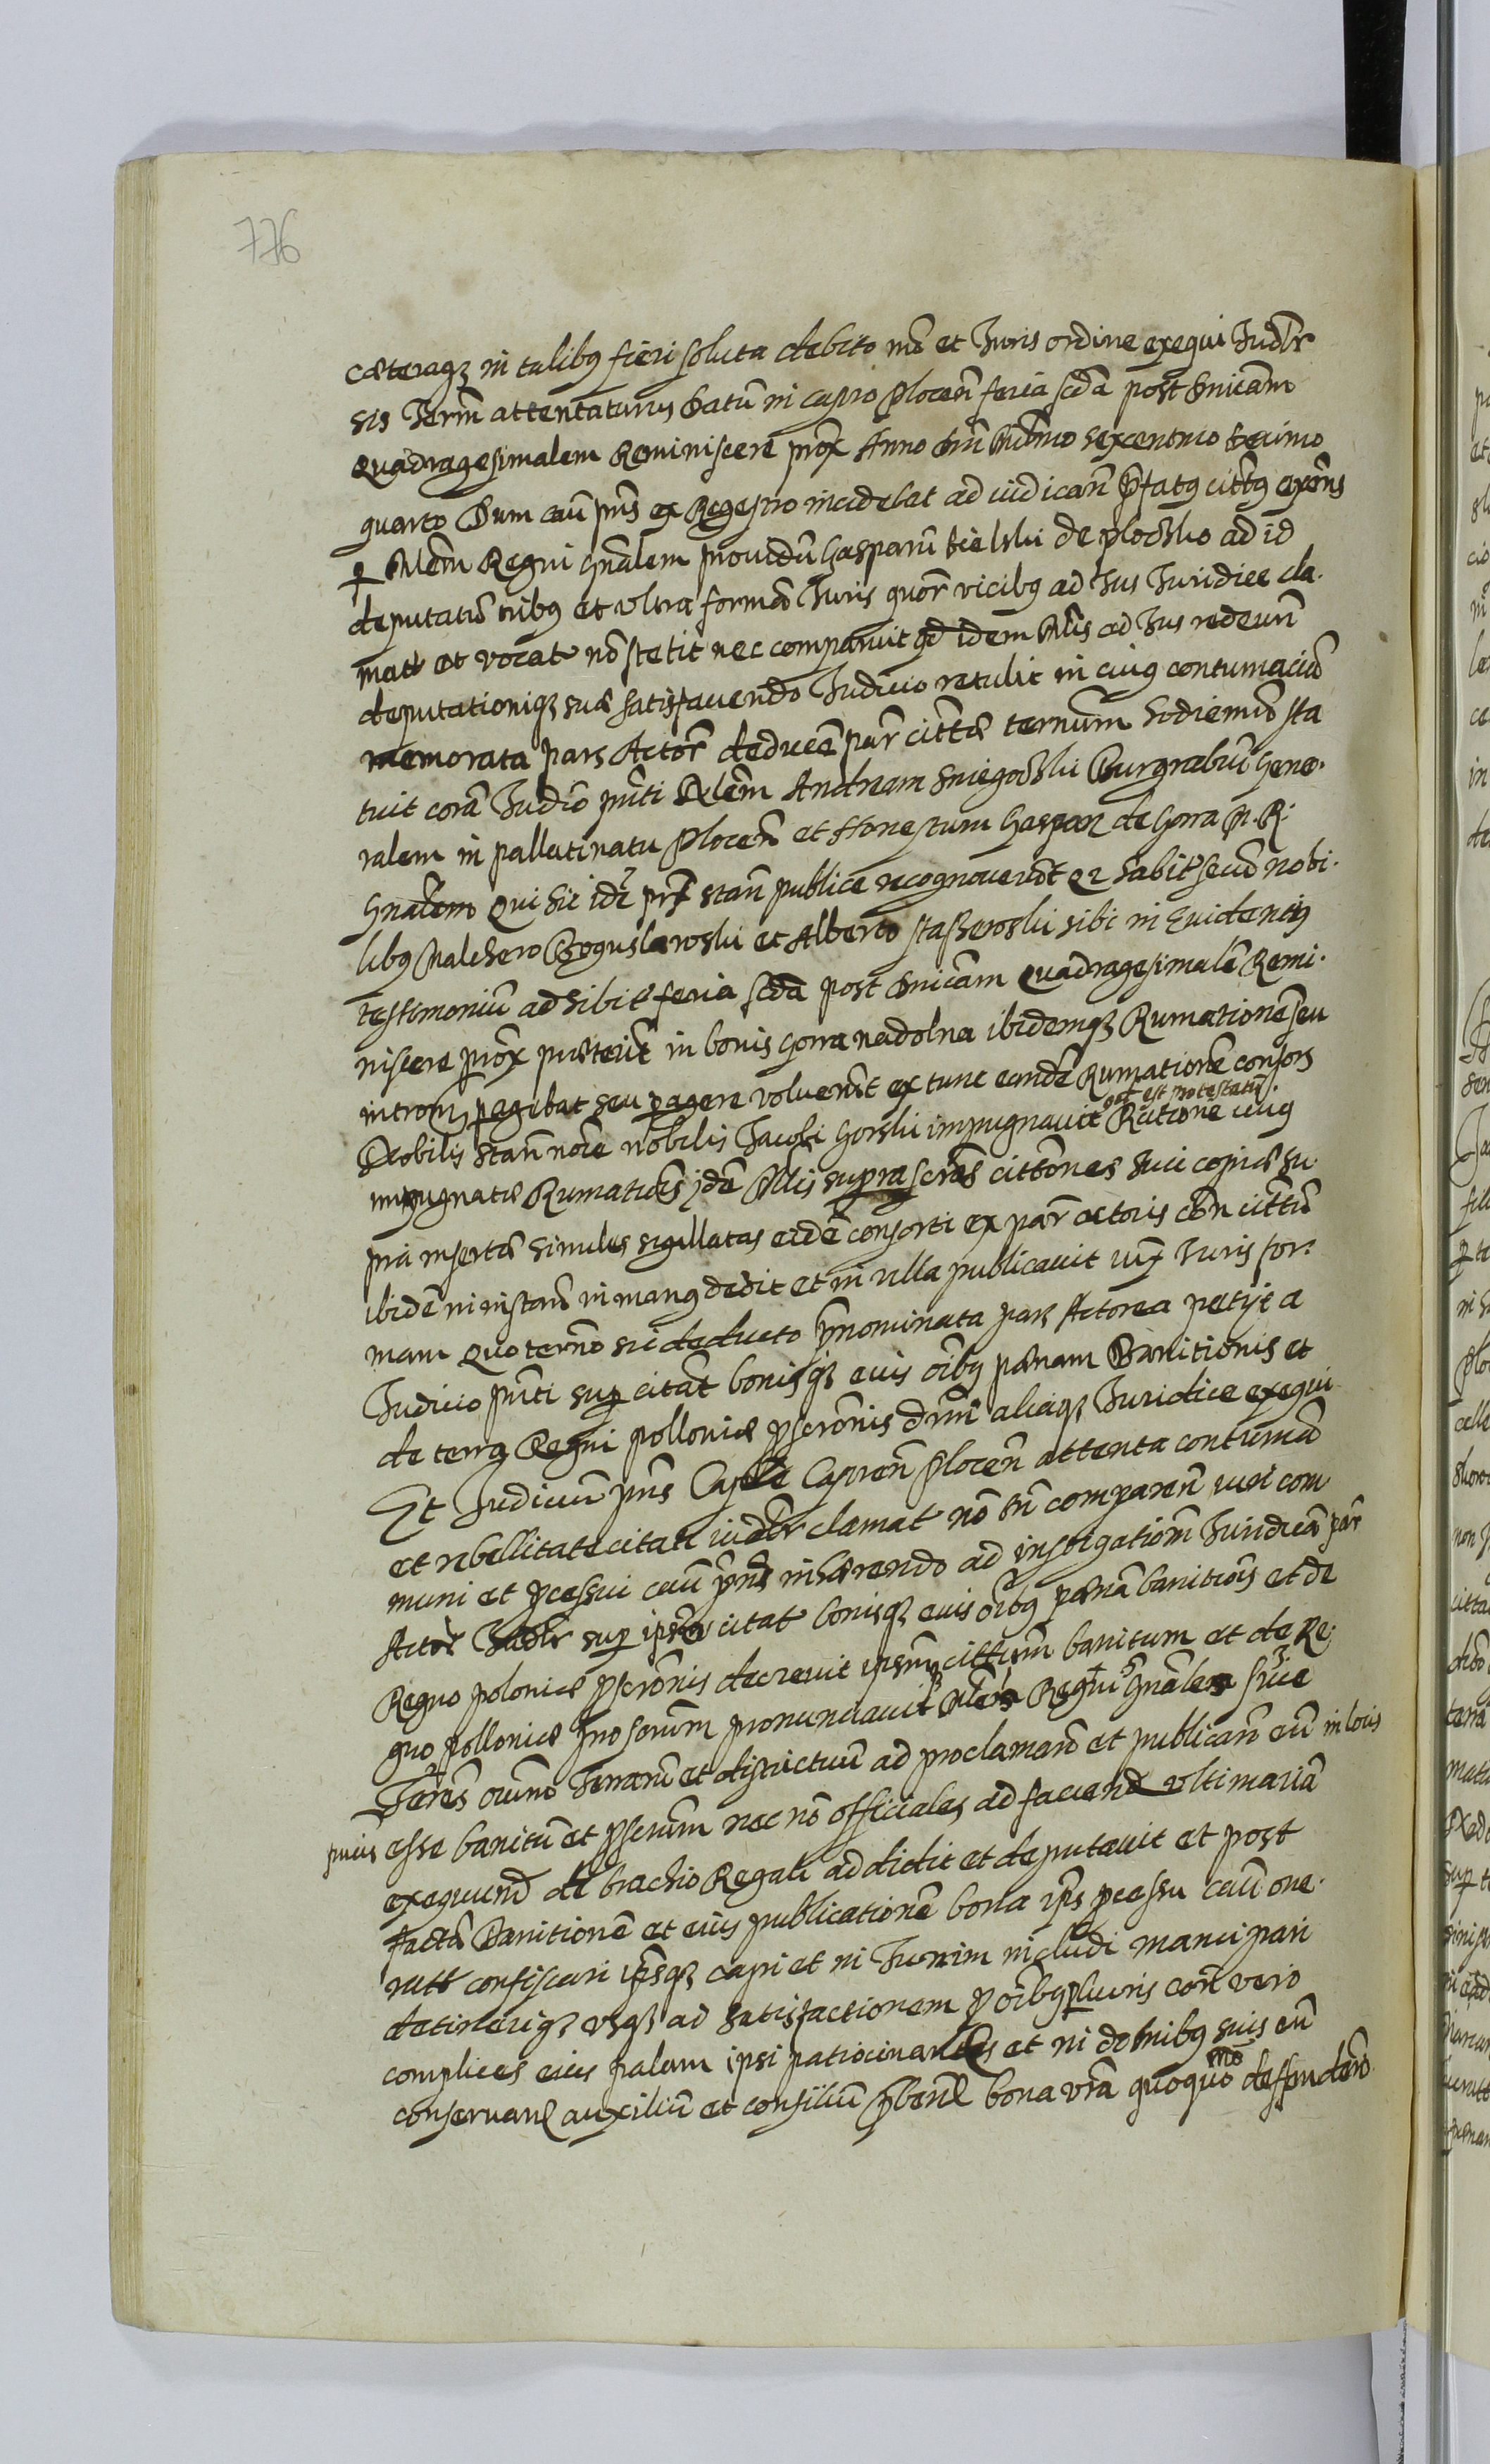 776
cæteraq₃ in talibꝯ fieri soluta debito mō et Juris ordine exequi Judlr
sis Term̄ attentaturus Datū in castro Plocen̄ feria scdā post Dnicam
Quadragesimalem Reminiscere prox̄ Anno Dnī Millmo sexcentmo decimo
quarto Dum cau pn̄s ex Regestro incidebat ad iudican̄ p̄fatꝯ cittꝯ
ꝑ Mlem̄ Regni Gnālem providū Gasparū Bielski de Plocsko ad id
deputatū tribꝯ et ultra formā Juris quor̄ vicibꝯ ad Jus Juridice cla-
mat et vocat nō stetit nec comparuit qd idem Mlis ad Jus redeun̄
deputationiq₃ suæ satisfaciendo Judicio retulit in cuiꝯ contumaciā
memorata pars Actor̄ deducen̄ par̄ cittæ termum̄ hodiernū sta
tuit corā Judicio pn̄ti Nlem̄ Andream Sniegoczki Burgrabiū Gene-
ralem in pallatinatu Plocen̄ et Honestum Gaspar de Gorra M. R:
Gnālem Qui hic idr̄ prs stan̄ publice recognoverūt qr habit secū nobi-
libꝯ Malchero Boguslawski et Alberto Staszewski sibi in Evidenciꝯ
testimoniū adhibit feria scdā post Dnicam Quadragesimalē Remi-
niscere prox̄ præterit̄ in bonis Gorra nadolna ibidemq₃ Rumationē seu
intrōm pagebat seu peragere voluerunt ex tunc eandē Rumationē consors
Nobilis stan̄ noīe nobilis Jacobi Gorski impugnavit et est protestatū. Ratione cuiꝯ
impugnatæ Rumationis idē Mlis suprascrās cittōnes huic copiæ su
pri insertā similes sigillatas eidē consorti ex par̄ actoris cōn cittū
ibidē in instan̄ in manꝯ dedit et in villa publicavit iux Juris for-
mam Quo termo sic deducto p̄nominata pars Actorea petiit a
Judicio pn̄ti sup citat bonisq₃ euis oībꝯ pænam Banitionis et
de terra Regni polloniæ pscrōnis Aliaq₃ Juridice exequi
Et Judicium pn̄s Castr Castren̄ Plocen̄ attenta contumā
et rebellitate citati iudlr clamat nō tn̄ comparen̄ iuri com
muni et pcessui cau pn̄s inhærendo ad instigatiom̄ Juridicā par̄
Actor̄ Judlr sup ipsū citat bonisq₃ euis oībꝯ pænā banitiōis et de
Regno poloniæ pscrōnis decrevit ipsum cittum banitum et de Re-
gno polloniæ proscrum̄ pronunciavit Regni Gnāles sive
Terres̄ omn̄o Terrarū et districtuū ad proclaman̄ et publican̄ eū in locis
puius esse banitū et pscrum̄ nec nō officiales ad faciend ultimariā
exequund de brachio Regali addidit et deputavit et post
factā Banitionē et eius publicationē bona ips pcessu cau one-
ratt confiscari ipsq₃ capi et in Turrim includi mancipari
detineriq₃ usq₃ ad satisfactionem p oībꝯ pluris cōn vero
complices eius palam ipsi patrocinantes et in domibꝯ suis eū
conservan̄ auxiliū et consiliū p̄ben̄ bona vra quoquo mō deffenden̄